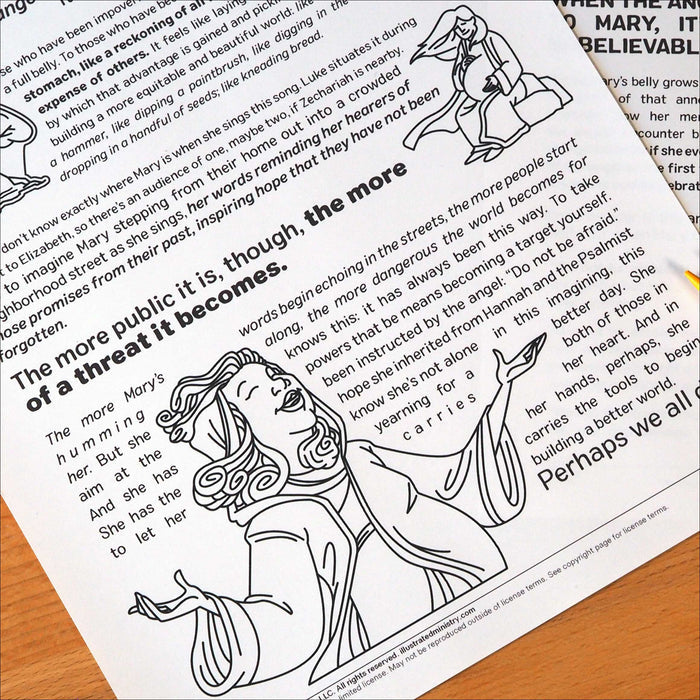 se who have been impover
a full belly. To those who have be
stomach, like a reckoning of al
expense of others. It feels like laying
by which that advantage is gained and pickin
building a more equitable and beautiful world: like
a hammer, like dipping a paintbrush, like digging in the
dropping in a handful of seeds; like kneading bread.
don't know exactly where Mary is when she sings this song. Luke situates it during
t to Elizabeth, so there's an audience of one, maybe two, if Zechariah is nearby.
to imagine Mary stepping from their home out into a crowded
ghborhood street as she sings, her words reminding her hearers of
ose promises from their past, inspiring hope that they have not been
forgotten.
The more public it is, though, the more
of a threat it becomes.
The more Mary's words begin echoing in the streets, the more people start
humming along, the more dangerous the world becomes for
her. But she knows this: it has always been this way. To take
aim at the powers that be means becoming a target yourself.
And she has been instructed by the angel: "Do not be afraid."
She has the hope she inherited from Hannah and the Psalmist
to let her know she's not alone in this imagining, this
yearning for a better day. She
carries both of those in
her heart. And in
her hands, perhaps, she
carries the tools to begin
building a better world.
Perhaps we all
LLC. All rights reserved. illustratedministry.com
limited license. May not be reproduced outside of license terms. See copyright page for license terms.
WHEN THE AN
O MARY, IT
BELIEVABL
ary's belly grows
of that ann
w her me
counter b
if she eve
e first
ebrat